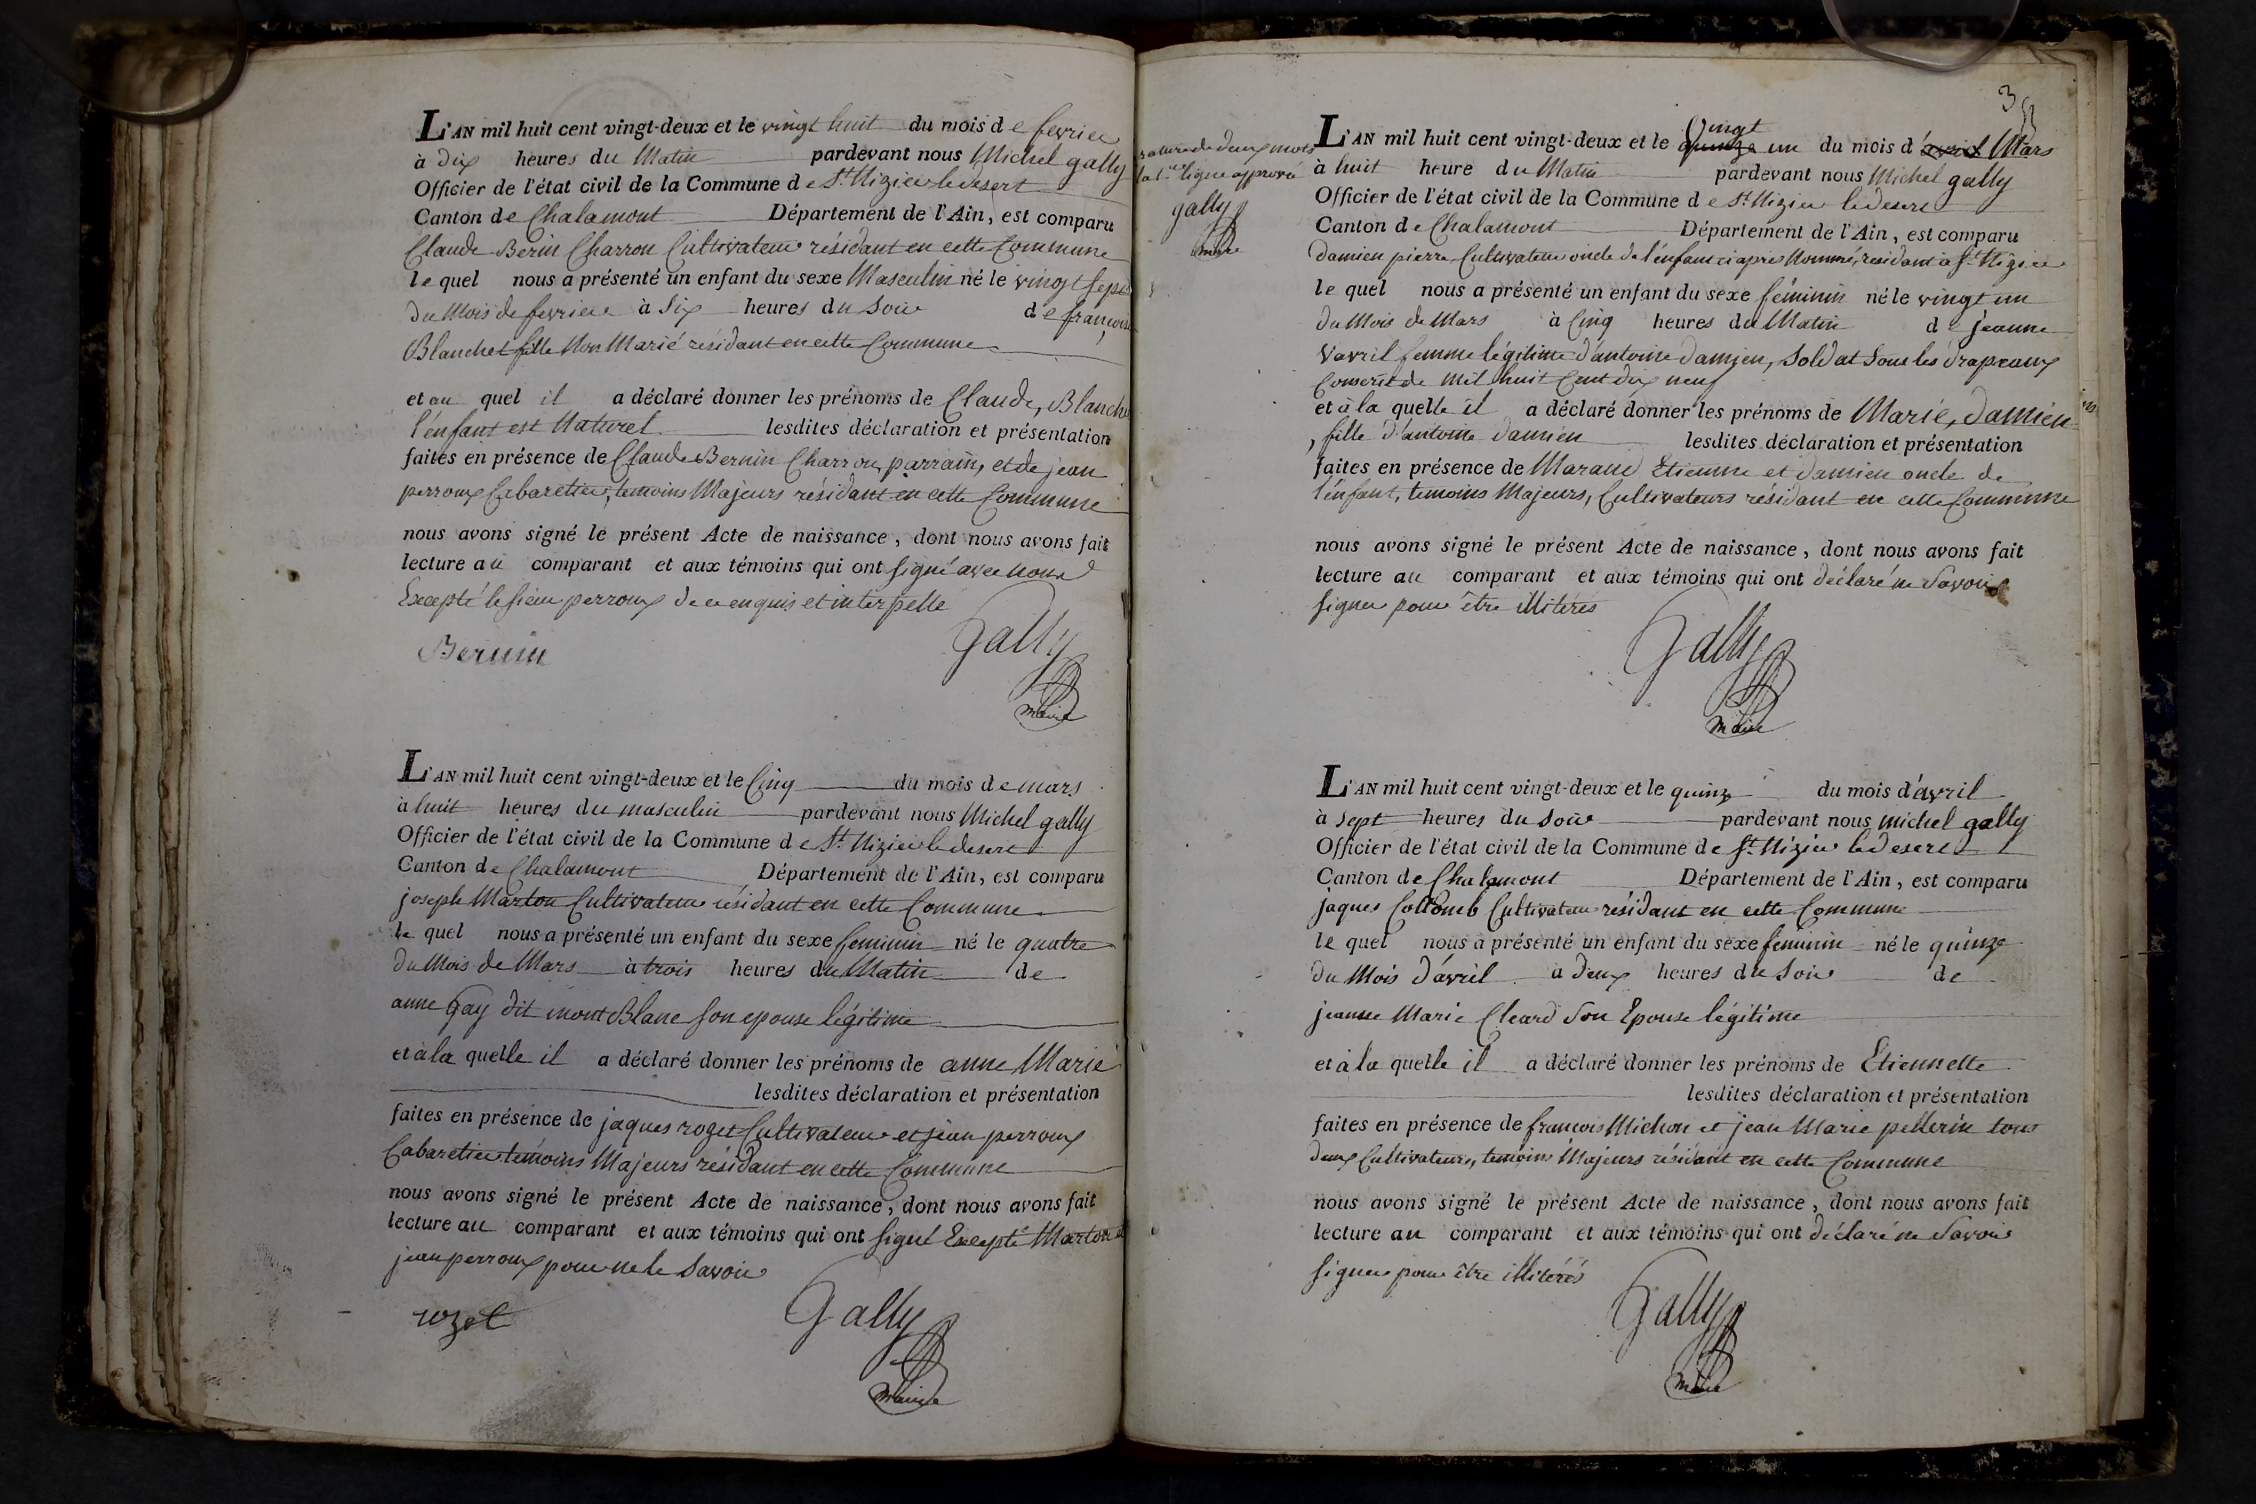 L'AN mil huit cent vingt-deux et le vingt huit du mois de fevrier
à dix heures du Matin pardevant nous Michel gally
Officier de l'état civil de la Commune de St. Nizier le desert
Canton de Chalamont Département de l'Ain, est comparu
Claude Bernin Charron Cultivateur résidant en cette Commune
le quel nous a présenté un enfant du sexe Masculin né le vingt sept
du Mois de fevrier à Six heures du Soir de francoise
Blanchet fille Non Marié résidant en cette Commune
et au quel il a déclaré donner les prénoms de Claude, Blanchet
l'enfant est Naturel lesdites déclaration et présentation
faites en présence de Claude Bernin Charron, parrain, et de jean
perroux Cabaretier, temoins Majeurs résidant en cette Commune
nous avons signé le présent Acte de naissance, dont nous avons fait
lecture au comparant et aux témoins qui ont signé avec nous
Excepté le sieur perroux de ce enquis et interpellé
Bernin
Gally
maire
L'AN mil huit cent vingt-deux et le Cinq du mois de mars
à huit heures du masculin pardevant nous Michel gally
Officier de l'état civil de la Commune de St. Nizier le desert
Canton de Chalamont Département de l'Ain, est comparu
joseph Marton Cultivateur résidant en cette Commune
le quel nous a présenté un enfant du sexe feminin né le quatre
du Mois de Mars à trois heures du Matin de
anne Gay dit mont Blanc son epouse légitime
et à la quelle il a déclaré donner les prénoms de anne Marie
lesdites déclaration et présentation
faites en présence de jaques rozet Cultivateur et jean perroux
Cabaretier temoins Majeurs résidant en cette Commune
nous avons signé le présent Acte de naissance, dont nous avons fait
lecture au comparant et aux témoins qui ont signé Excepté Marton et
jean perroux pour ne le Savoir
rozet
Gally
maire
35
rature de deux mots
la 1ere ligne approuvé
gally
maire
L'AN mil huit cent vingt-deux et le quinze Vingt un du mois d'avril Mars
à huit heure du Matin pardevant nous Michel gally
Officier de l'état civil de la Commune de St. Nizier le desert
Canton de Chalamont Département de l'Ain, est comparu
damien pierre Cultivateur oncle de l'enfant ci après Nommé, résidant à St. Nizier
le quel nous a présenté un enfant du sexe féminin né le vingt un
du Mois de Mars à Cinq heures du Matin de jeanne
Vavril femme légitime d'antoine damien, Soldat Sous les drapeaux
Conscrit de Mil huit Cent dix neuf
et à la quelle il a déclaré donner les prénoms de Marie, damien
, fille d'antoine damien lesdites déclaration et présentation
faites en présence de Marand Etienne et damien oncle de
l'enfant, temoins Majeurs, Cultivateurs résidant en cette Commune
nous avons signé le présent Acte de naissance, dont nous avons fait
lecture au comparant et aux témoins qui ont déclaré ne Savoir
signer pour être illitérés
Gally
maire
L'AN mil huit cent vingt-deux et le quinze du mois d'avril
à sept heures du Soir pardevant nous michel gally
Officier de l'état civil de la Commune de St. Nizier le desert
Canton de Chalamont Département de l'Ain, est comparu
jaques Collomb Cultivateur résidant en cette Commune
le quel nous a présenté un enfant du sexe féminin né le quinze
du Mois d'avril à deux heures du Soir de
jeanne Marie Cleard Son Epouse légitime
et à la quelle il a déclaré donner les prénoms de Etiennette
lesdites déclaration et présentation
faites en présence de francois Michon et jean Marie pellerin tous
deux Cultivateurs, temoins Majeurs résidant en cette Commune
nous avons signé le présent Acte de naissance, dont nous avons fait
lecture au comparant et aux témoins qui ont déclaré ne Savoir
signer pour être illitérés
Gally
maire